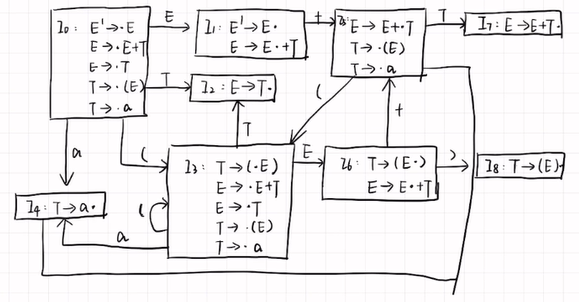 I₀: E'→·E
E→·E+T
E→·T
T→·(E)
T→·a
E
I₁: E'→E·
E→E·+T
+
I₅: E→E+·T
T→·(E)
T→·a
T
I₇: E→E+T·
T
I₂: E→T·
(
T
+
a
(
I₃: T→(·E)
E→·E+T
E→·T
T→·(E)
T→·a
E
I₆: T→(E·)
E→E·+T
)
I₈: T→(E)·
I₄: T→a·
(
a